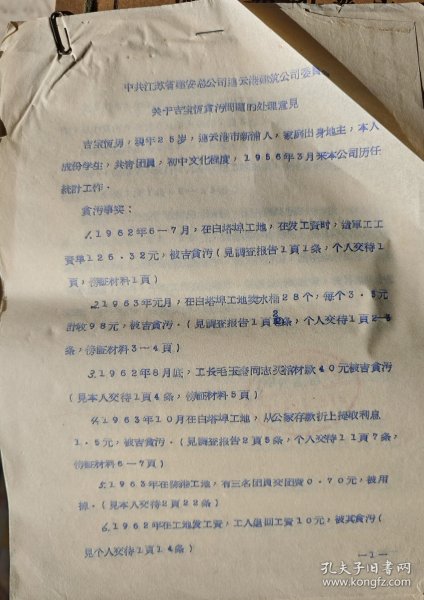 中共江苏省建安总公司連云港建筑公司委員
关于吉宗恆貪污問題的处理意見
吉宗恆男，現年25岁，連云港市新浦人，家庭出身地主，本人
成份学生，共青团員，初中文化程度，1956年3月来本公司历任
統計工作。
貪污事实：
1.1962年6—7月，在白塔埠工地，在发工資时，
資單126.32元，被吉貪污（見調查报告1頁1条，个人交待1
頁，旁証材料1頁）
2.1963年元月，在白塔埠工地卖水桶28个，每个3.5元
98元，被吉貪污.（見調查报告1頁2条，个人交待1頁2—3
条，旁証材料3—4頁）
3.1962年8月底，工長毛玉 同志 材款40元被吉貪污
（見本人交待1頁4条，旁証材料5頁）
4.1963年10月在白塔埠工地，从公家存款折上提取利息
1.5元，被吉貪污.（見調查报告2頁5条，个人交待11頁7条，
旁証材料6—7頁）
5.1963年在 港工地，有三名团員交团費0.70元，被用
掉.（見本人交待2頁22条）
6.1962年在工地发工資，工人退回工資10元，被其貪污（
見个人交待1頁14条）
—1—
孔夫子旧书网
www.kongfz.com